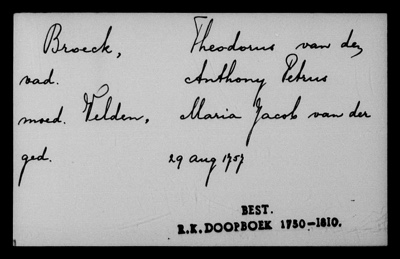 Broeck, Theodorus van den
vad. Anthony Petrus
moed. Velden, Maria Jacob van der
ged. 29 aug 1757
BEST.
R.K. DOOPBOEK 1750-1810.